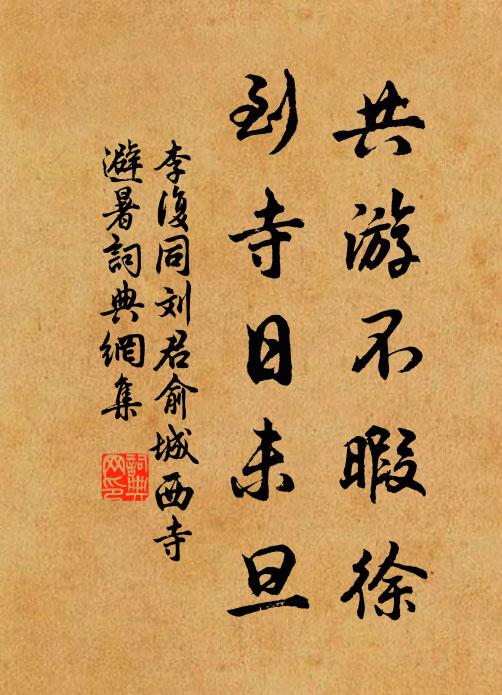 共游不暇徐
到寺日未旦
李復同刘君俞城西寺
避暑詞典網集
詞典
网印